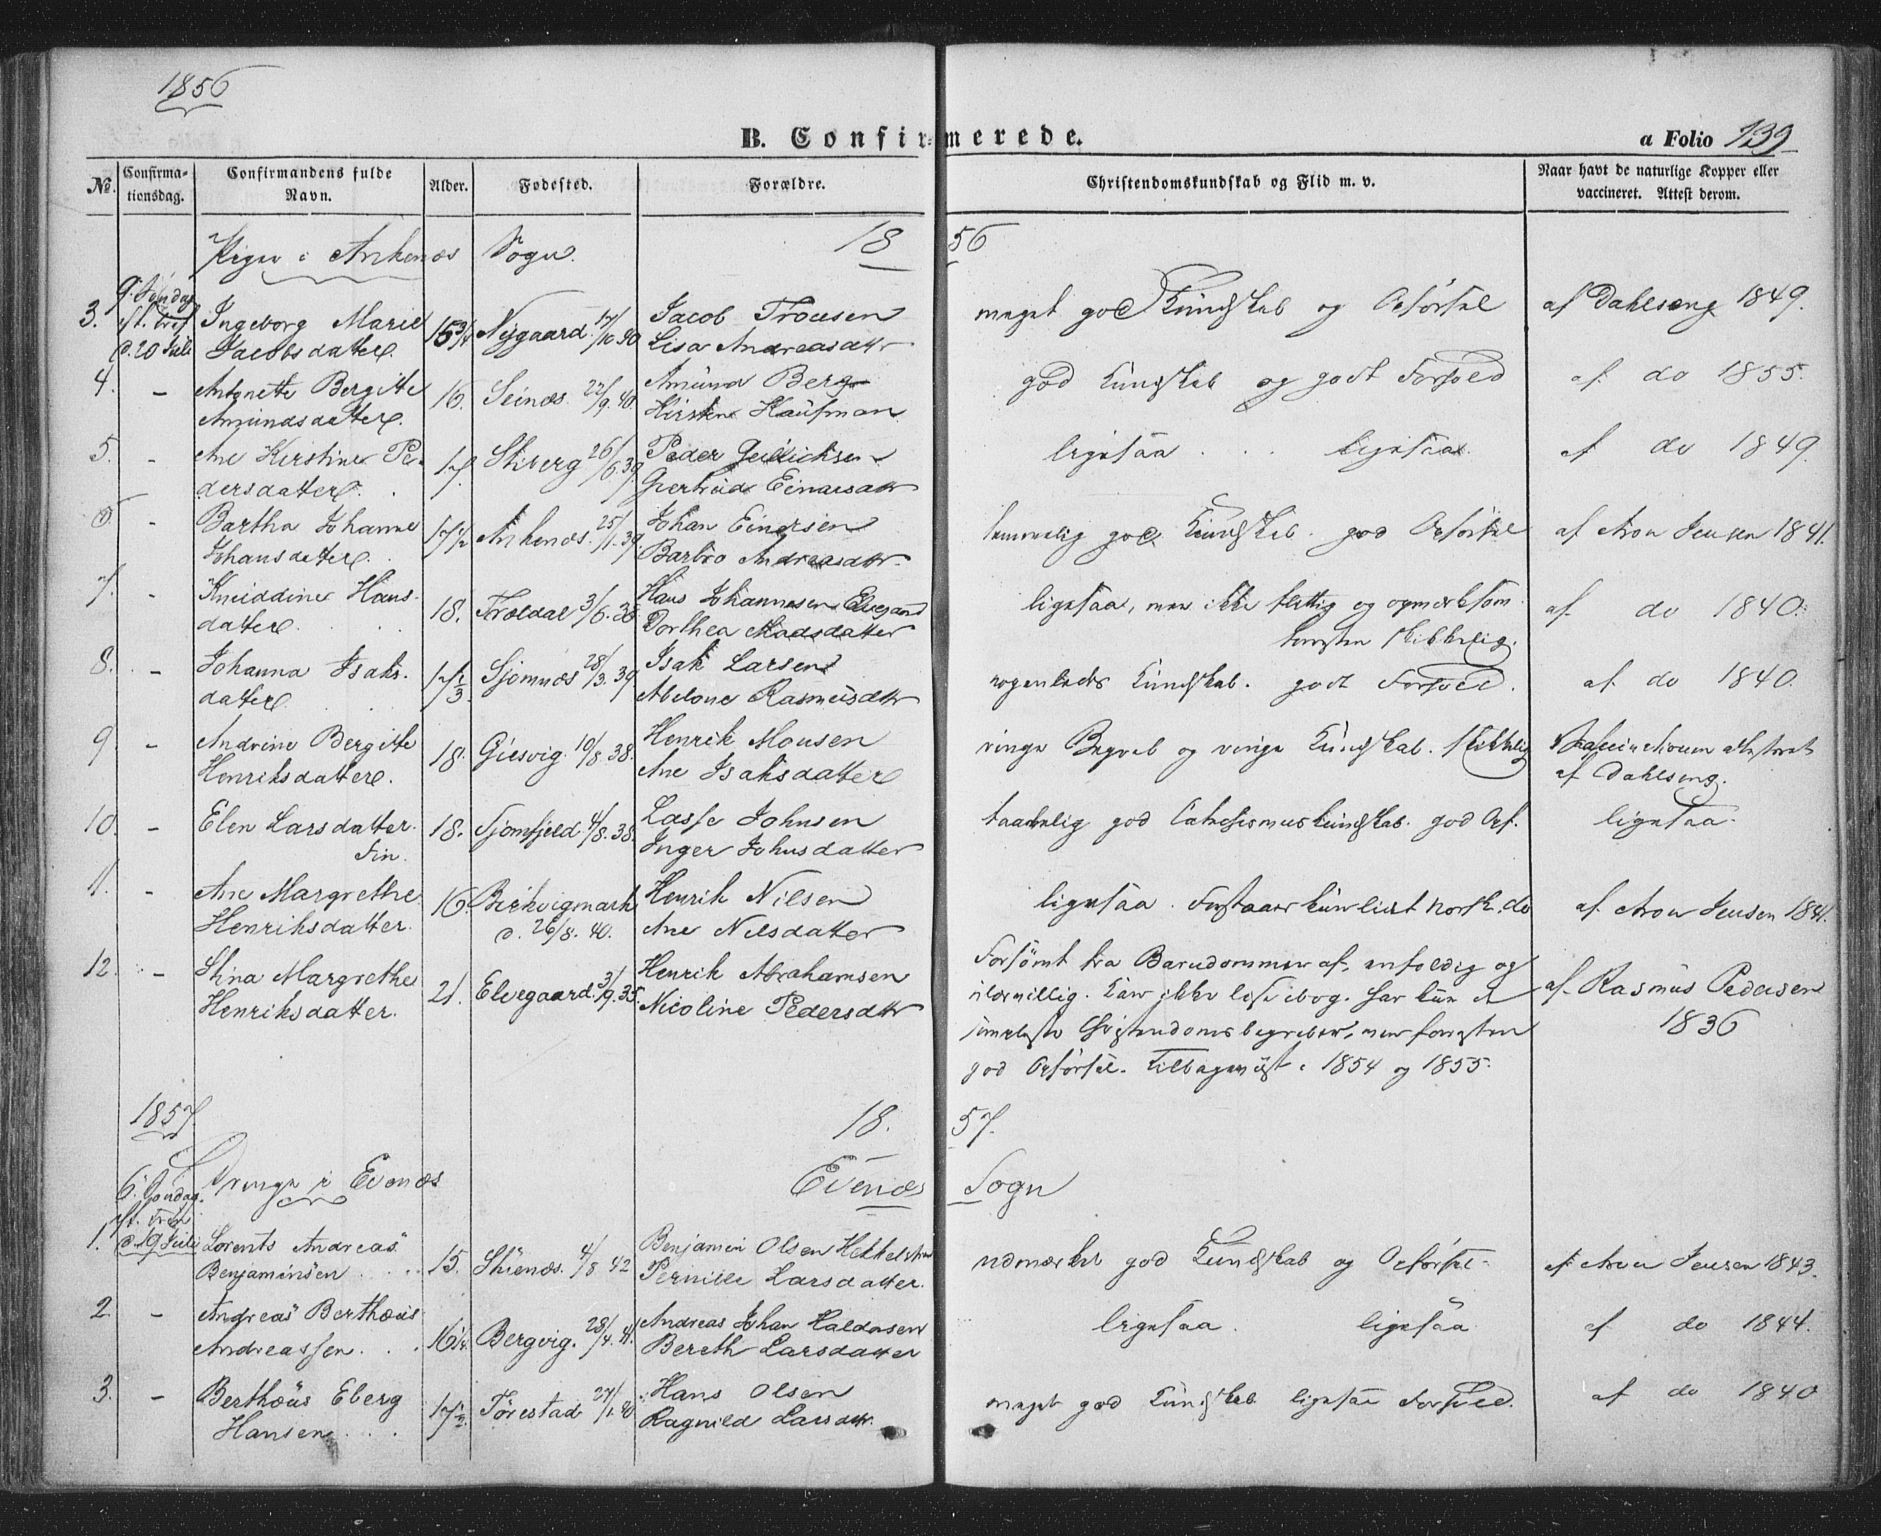 1856
B. Confirmerede.
a Folio 139
№
Confirmationsdag.
Confirmandens fulde Navn.
Alder.
Fødested.
Forældre.
Christendomskundskab og Flid m. v.
Naar havt de naturlige Kopper eller vaccineret. Attest derom.
Piger i Ankenæs Sogn. 1856
9. Søndag eft. Tref. d. 20 Juli
3. Ingeborg Marie Jacobsdatter. 15 3/4 Nygaard 17/10 40 Jacob Tronsen Lisa Andreasdttr meget god Kundskab og Opførsel af Dahlseng 1849.
4. – Antonette Bergitte Amundsdatter. 16. Seines 22/9. 40. Amund Berg Kirsten Kaufman god Kundskab og godt Forhold af do 1855.
5. – Ane Kirstine Pedersdatter. 17. Skiberg 26/6 39. Peder Gertrud Einarsdttr ligesaa . . ligesaa. af do 1849.
6. – Bartha Johanne Johansdatter. 17 1/2 Ankenæs. 25/1. 39. Johan Einersen Barbro Andreasdttr. temmelig god Kundskab. god Opførsel af Aron Jensen 1841.
7. – Hansdatter. 18. Trældal 3/6. 38 Hans Johannesen Elvegaard Dorthea Madsdatter ligesaa, men ikke flittig og opmærksom. forresten skikkelig. af do 1840.
8. – Johanna Isaksdatter. 17 1/3 Sjomnæs 28/3. 39 Isak Larsen Abelone Rasmusdttr nogenledes Kundskab. godt Forhold. af do 1840.
9. – Andrine Bergitte Henriksdatter. 18. Giesvig. 10/8 38. Henrik Monsen Ane Isaksdatter ringe Begreb og ringe Kundskab. skikkelig Vaccinationen attesteret af Dahlseng.
10. – Elen Larsdatter. Fin. 18. Sjomfjeld 4/8. 38. Lasse Johnsen Inger Johnsdatter taalelig god Catechismuskundskab. god Opf. ligesaa.
11. – Ane Margrethe Henriksdatter. 16. Beisvigmark d. 26/8. 40. Henrik Nilsen Ane Nilsdatter ligesaa. Forstaaer kun lidt norsk. do af Aron Jensen 1841.
12. – Stina Margrethe Henriksdatter. 21. Elvegaard. 3/9. 35. Henrik Abrahamsen Nicoline Pedersdttr Forsømt fra Barndommen af, enfoldig og
Kan ikke læse i bog. har kun de
simpleste Christendomsbegreber, men forresten
god Opførsel. Tilbageviist i 1854 og 1855.
af Rasmus Pedersen 1836
1857. 1857.
Drenge i Evenæs Evenæs Sogn
6. Søndag eft. Tref. d. 19 Juli
1. Lorents Andreas Benjaminsen 15. Skienæs. 4/8 42 Benjamin Olsen Pernille Larsdatter. udmærket god Kundskab og Opførsel. af Aron Jensen 1843.
2. – Andreas Berthæus Andreassen 16 1/4 Bergvig. 28/4. 41. Andreas Johan Haldorsen Bereth Larsdatter ligesaa. ligesaa af do 1844.
3. – Berthæus Eberg Hansen 17 1/2 Tørestad 27/1. 40 Hans Olsen Ragnild Larsdttr. meget god Kundskab ligesaa Forhold. af do 1840